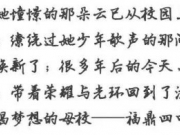 她憧憬的那朵云已从校园上
缭绕过她少年歌声的那间
焕新了；很多年后的今天、
带着荣耀与光环回到了
梦想的母校——福鼎四中